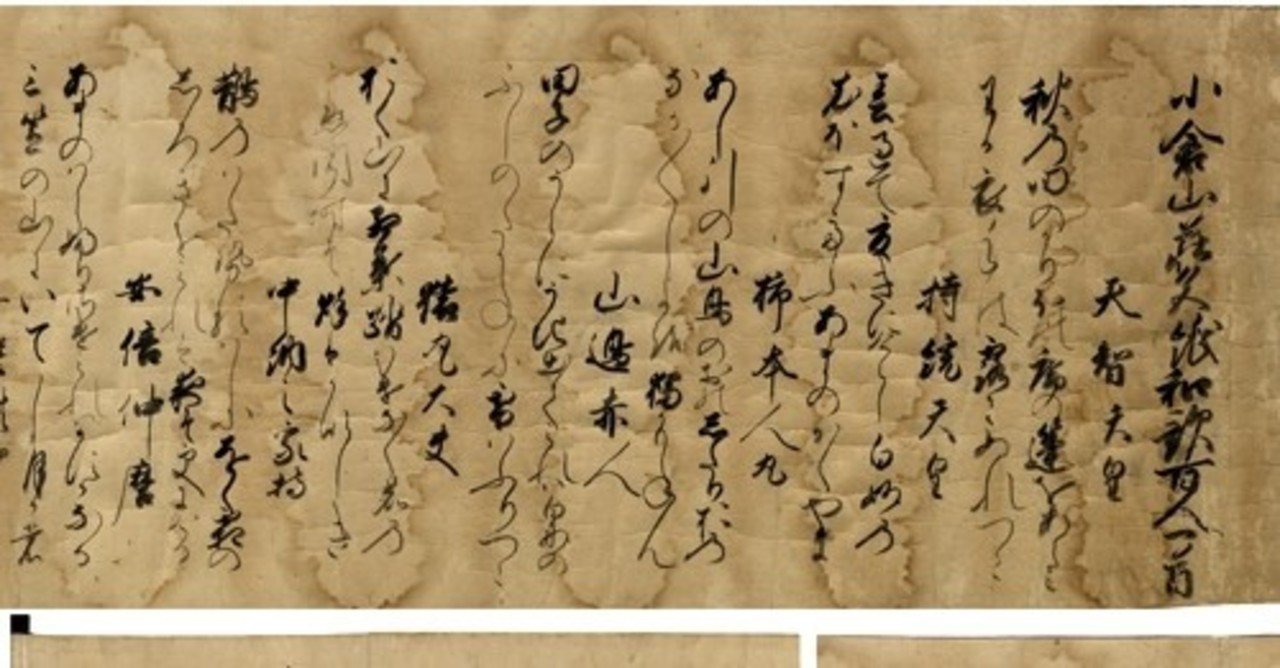 小倉山荘色紙和歌百人一首
天智天皇
秋乃田のかりほの廬の蓬をあらミ
わか衣ては露にぬれつゝ
持統天皇
春過て夏きにけらし白妙乃
ころもほすてふあまのかくやま
柿本人丸
あし引の山鳥のおのしたりおの
なか〱し夜を獨かもねん
山邊赤人
田子のうらにうち出てみれは白妙の
ふしのたかねに雪はふりつゝ
猿丸大夫
おく山に紅葉踏分なく鹿乃
聲聞時そ
秋はかなしき
中納言家持
鵲乃わたせるはしにをく霜の
しろきをみれは夜そ更にける
安倍仲麿
あまの原ふりさけみれはかすかなる
三笠の山にいてし月かも